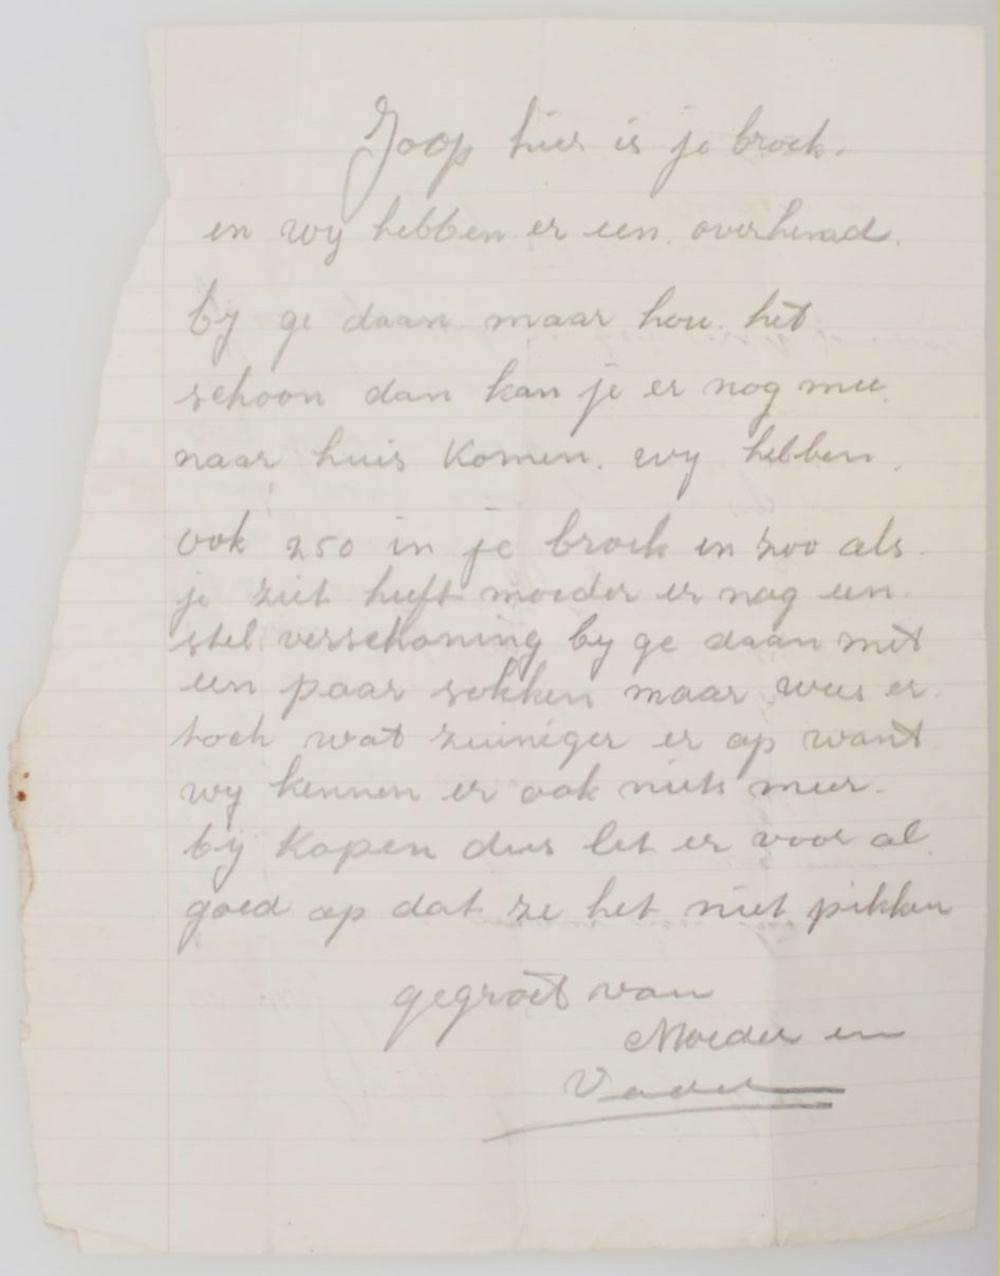 Joop hier is je broek.
en wy hebben er een overhemd.
by ge daan maar hou het
schoon dan kan je er nog mee
naar huis komen. wy hebben
ook 250 in je broek en zoo als
je ziet heeft moeder er nog een
stel verschoning by ge daan met
een paar sokken maar wees er
toch wat zuiniger er op want
wy kennen er ook niets meer.
by kopen dus let er voor al
goed op dat ze het niet pikken
gegroet van
Moeder en
Vader